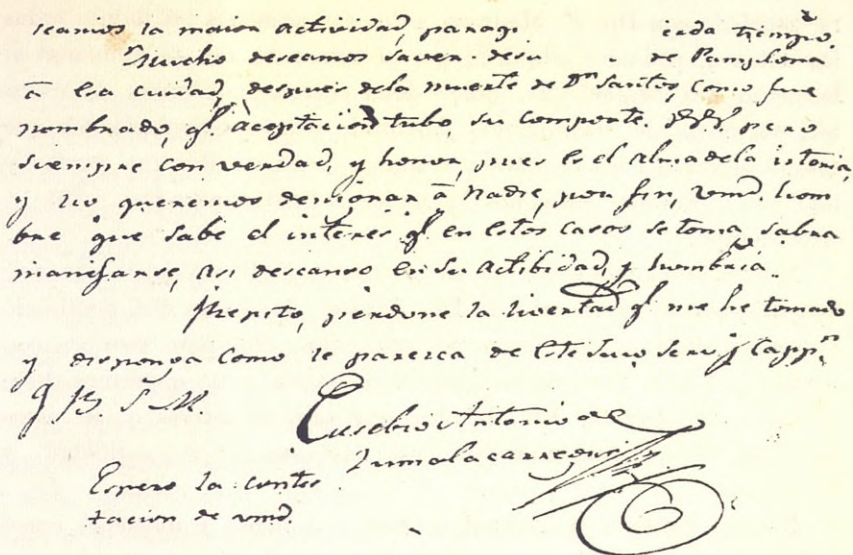 seamos la maior actividad, paraq. erda tiempo
Mucho deseamos saver desu de Pamplona
â esa ciudad, despues dela muerte de Dn Santos, como fue
nombrado, q. aceptacion tubo, su comporte pero
siempre con verdad, y honor, pues es el alma dela istoria,
y no queremos denigrar â Nadie, por fin, vmd. hom
bre que sabe el interes q. en estos casos se toma, sabra
manejarse, asi descanso en su actibidad, y hombria.
Repito, perdone la livertad q. me he tomado
y disponga como le paresca de este suio serv.r y Capp.n
q. B. S. M.
Eusebio Antonio de
Zumalacarregui
Espero la contes
tacion de vmd.